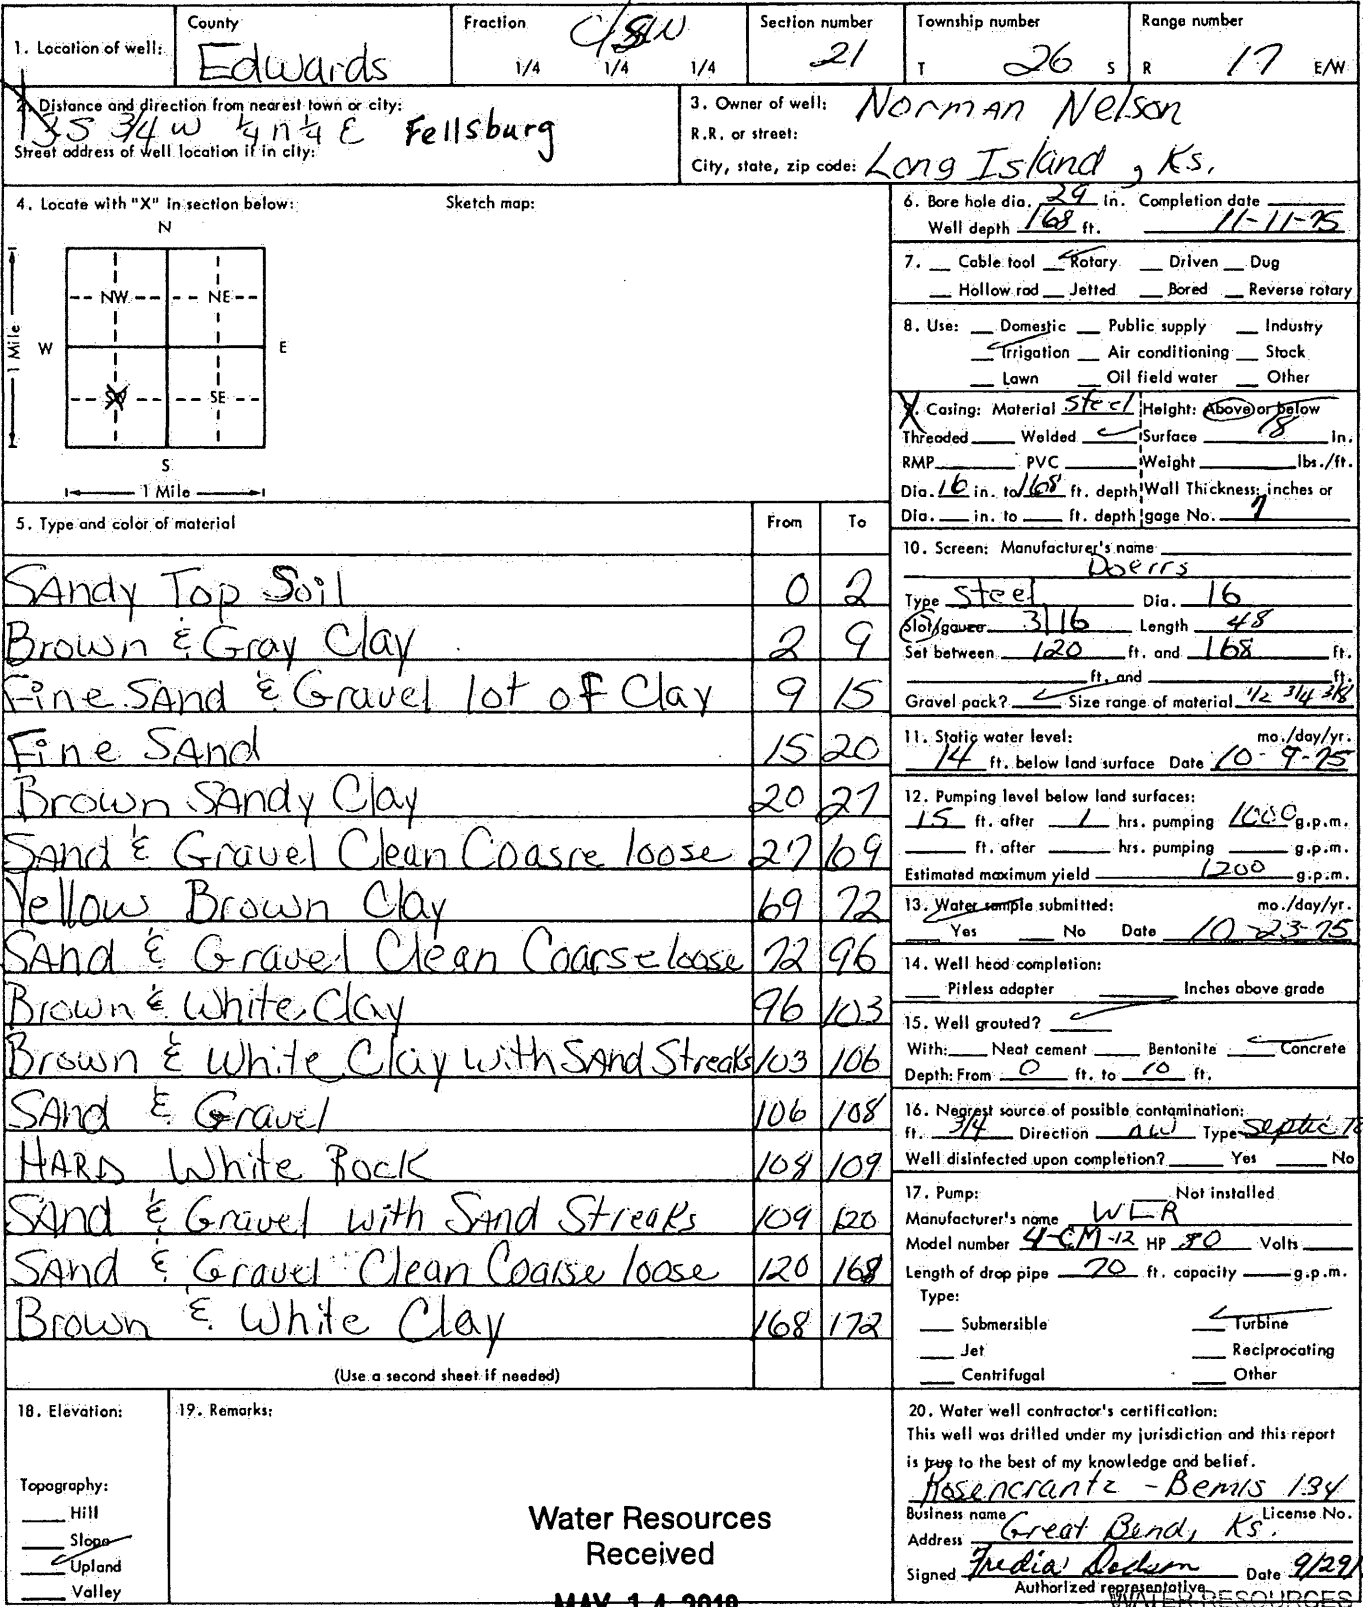 1. Location of well: County Edwards Fraction C/SW 1/4 1/4 1/4 Section number 21 Township number T 26 S Range number R 17 E/W
2. Distance and direction from nearest town or city:
3/4 W 1/4 n 1/4 E Fellsburg
Street address of well location if in city:
3. Owner of well: Norman Nelson
R.R. or street:
City, state, zip code: Long Island, Ks.
4. Locate with "X" in section below: Sketch map:
N
NW NE
W E
1 Mile
SW SE
S
1 Mile
5. Type and color of material From To
SAndy Top Soil 0 2
Brown & Gray Clay 2 9
Fine SAnd & Gravel lot of Clay 9 15
Fine SAnd 15 20
Brown SAndy Clay 20 27
SAnd & Gravel Clean Coasre loose 27 69
Yellow Brown Clay 69 72
SAnd & Gravel Clean Coarse loose 72 96
Brown & White Clay 96 103
Brown & White Clay with SAnd Streaks 103 106
SAnd & Gravel 106 108
HARD White Rock 108 109
SAnd & Gravel with SAnd Streaks 109 120
SAnd & Gravel Clean Coarse loose 120 168
Brown & White Clay 168 172
(Use a second sheet if needed)
6. Bore hole dia. 29 in. Completion date
Well depth 168 ft. 11-11-75
7. Cable tool Rotary Driven Dug
Hollow rod Jetted Bored Reverse rotary
8. Use: Domestic Public supply Industry
Irrigation Air conditioning Stock
Lawn Oil field water Other
9. Casing: Material Steel Height: Above or below
Threaded Welded Surface 18 In.
RMP PVC Weight lbs./ft.
Dia. 16 in. to 168 ft. depth Wall Thickness: inches or
Dia. in. to ft. depth gage No. 7
10. Screen: Manufacturer's name
Doerrs
Type Steel Dia. 16
Slot/gauze 3/16 Length 48
Set between 120 ft. and 168 ft.
ft. and ft.
Gravel pack? Size range of material 1/2 3/4 3/8
11. Static water level: mo./day/yr.
14 ft. below land surface Date 10-9-75
12. Pumping level below land surfaces:
15 ft. after 1 hrs. pumping 1000 g.p.m.
ft. after hrs. pumping g.p.m.
Estimated maximum yield 1200 g.p.m.
13. Water sample submitted: mo./day/yr.
Yes No Date 10-23-75
14. Well head completion:
Pitless adapter Inches above grade
15. Well grouted?
With: Neat cement Bentonite Concrete
Depth: From 0 ft. to 10 ft.
16. Nearest source of possible contamination:
ft. 3/4 Direction nw Type Septic
Well disinfected upon completion? Yes No
17. Pump: Not installed
Manufacturer's name WLR
Model number 4-CM-12 HP 80 Volts
Length of drop pipe 70 ft. capacity g.p.m.
Type:
Submersible Turbine
Jet Reciprocating
Centrifugal Other
18. Elevation:
Topography:
Hill
Slope
Upland
Valley
19. Remarks:
Water Resources
Received
MAY 14 2018
20. Water well contractor's certification:
This well was drilled under my jurisdiction and this report
is true to the best of my knowledge and belief.
Rosencrantz - Bemis 134
Business name License No.
Address Great Bend, Ks.
Signed Fredia Dodson Date 9/29/
Authorized representative
WATER RESOURCES